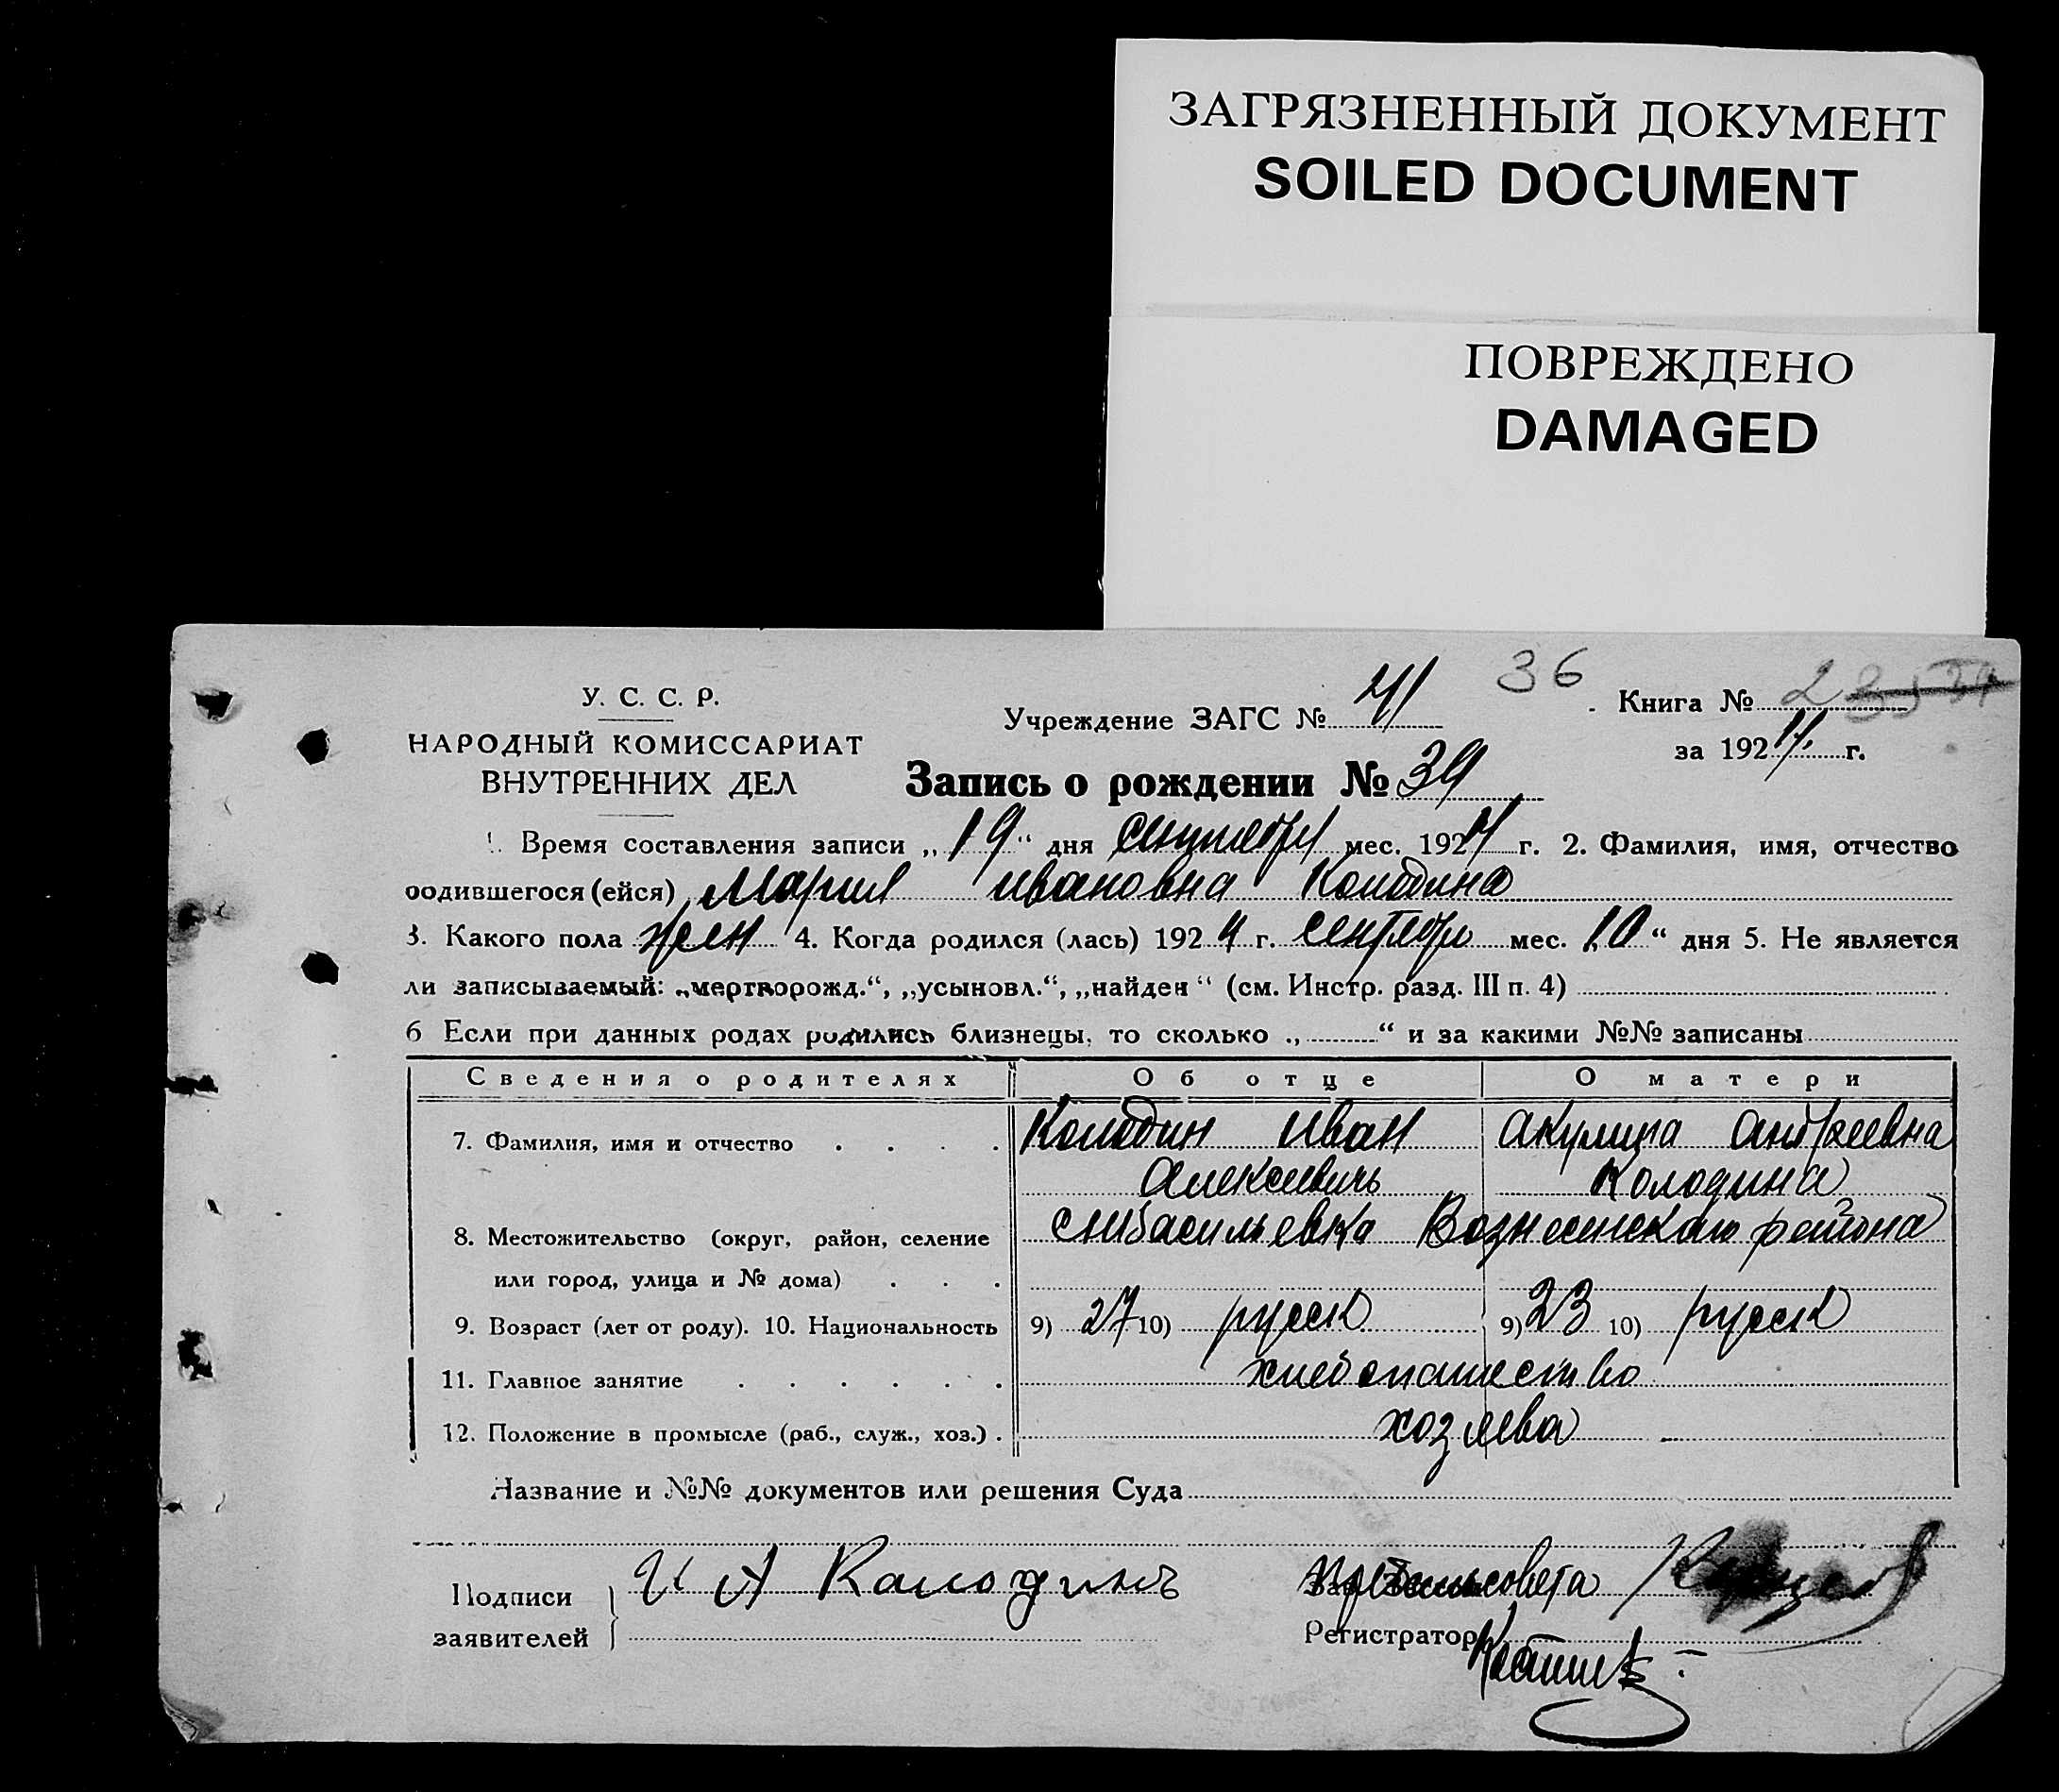 ЗАГРЯЗНЕННЫЙ ДОКУМЕНТ
SOILED DOCUMENT
ПОВРЕЖДЕНО
DAMAGED
36
У. С. С. Р.
НАРОДНЫЙ КОМИССАРИАТ
ВНУТРЕННИХ ДЕЛ
Учреждение ЗАГС № 41
Книга № 2
за 1924 г.
Запись о рождении № 39
1. Время составления записи „19“ дня сентября мес. 1924 г. 2. Фамилия, имя, отчество
родившегося (ейся) Мария Ивановна Колодина
3. Какого пола жен 4. Когда родился (лась) 1924 г. сентября мес. 10“ дня 5. Не является
ли записываемый: „мертворожд.“, „усыновл.“, „найден“ (см. Инстр. разд. III п. 4)
6 Если при данных родах родились близнецы, то сколько „ “ и за какими №№ записаны
Сведения о родителях Об отце О матери
7. Фамилия, имя и отчество Колодин Иван Акулина Андреевна
Алексеевичъ Колодина
8. Местожительство (округ, район, селение Васильевка Вознесенскаго района
или город, улица и № дома)
9. Возраст (лет от роду). 10. Национальность 9) 27 10) русск 9) 23 10) русск
11. Главное занятие хлебопашество
12. Положение в промысле (раб., служ., хоз.) хозяева
Название и №№ документов или решения Суда
Подписи
заявителей
И А Калодинъ
Регистратор